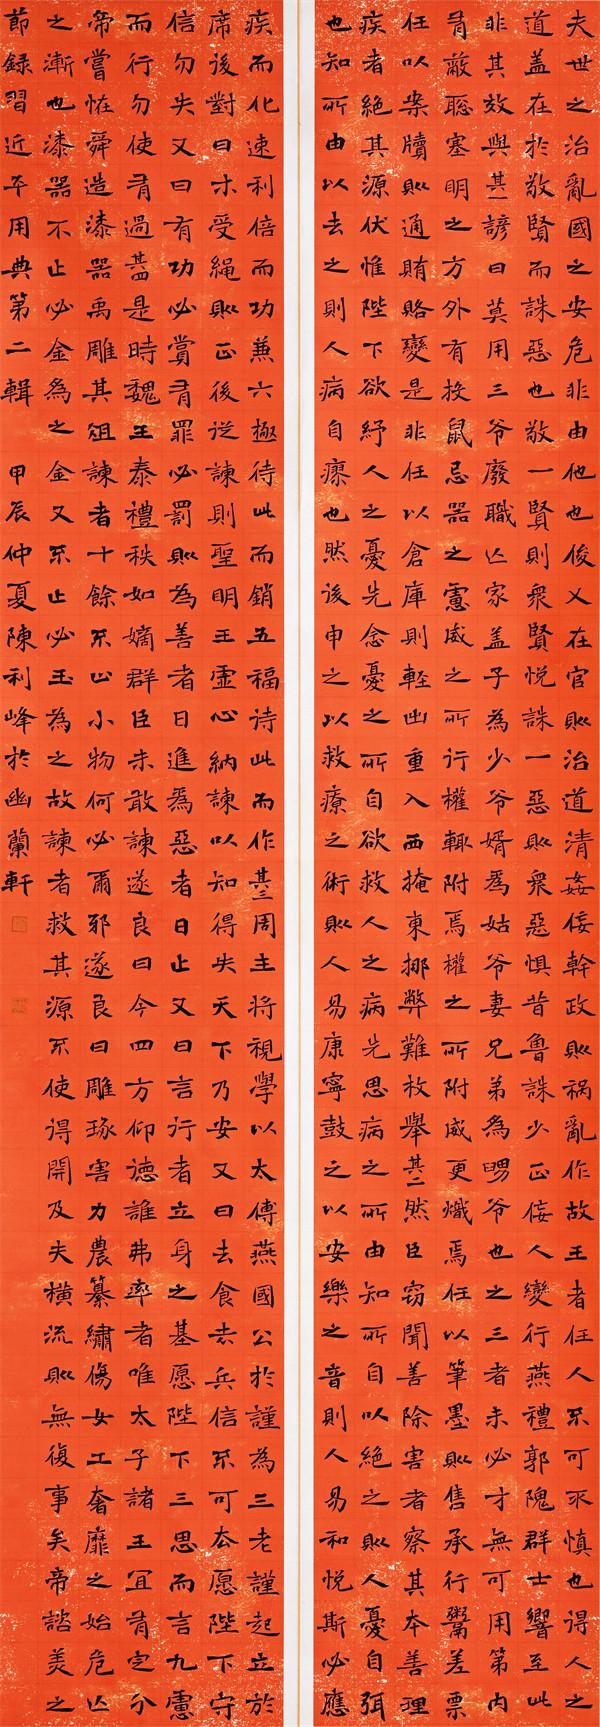 夫世之治亂國之安危非由他也俊乂在官則治道清姦佞幹政則禍亂作故王者任人不可不慎也得人之
道蓋在於敬賢而誅惡也敬一賢則衆賢悅誅一惡則衆惡懼昔魯誅少正佞人變行燕禮郭隗群士響至此
非其效與其一諺曰莫用三爷廢職亡家蓋子為少爷婿為姑爷妻兄弟為舅爷也之三者未必才無可用第内
有蔽聡塞明之方外有投鼠忌器之慮威之所行權輙附焉權之所附威更熾焉任以筆墨則售承行鬻差票
任以案牘則通賄賂變是非任以倉庫則輕出重入西掩東挪弊難枚舉其二然臣窃聞善除害者察其本善理
疾者絕其源伏惟陛下欲紓人之憂先念憂之所自欲救人之病先思病之所由知所自以絕之則人憂自弭
也知所由以去之則人病自瘳也然後申之以救療之術則人易康寧鼓之以安樂之音則人易和悅斯必應
疾而化速利倍而功兼六極待此而銷五福待此而作其三周主將視學以太傅燕國公於謹為三老謹起立於
席後對曰木受繩則正後從諫則聖明王虛心納諫以知得失天下乃安又曰去食去兵信不可去愿陛下守
信勿失又曰有功必賞有罪必罰則為善者日進為惡者日止又曰言行者立身之基愿陛下三思而言九慮
而行勿使有過其四是時魏王泰禮秩如嫡群臣未敢諫遂良曰今四方仰德誰弗率者唯太子諸王宜有定分
帝嘗怪舜造漆器禹雕其俎諫者十餘不止小物何必爾邪遂良曰雕琢害力農纂繡傷女工奢靡之始危亡
之漸也漆器不止必金為之金又不止必玉為之故諫者救其源不使得開及夫橫流則無復事矣帝諮美之
節録習近平用典第二輯 甲辰仲夏陳利峰於幽蘭軒